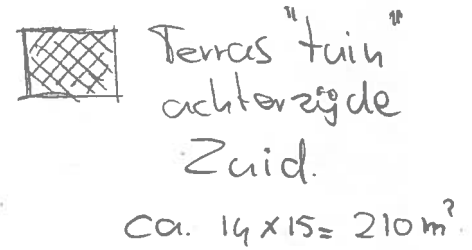 Terras "tuin"
achterzijde
Zuid.
ca. 14 x 15 = 210 m²